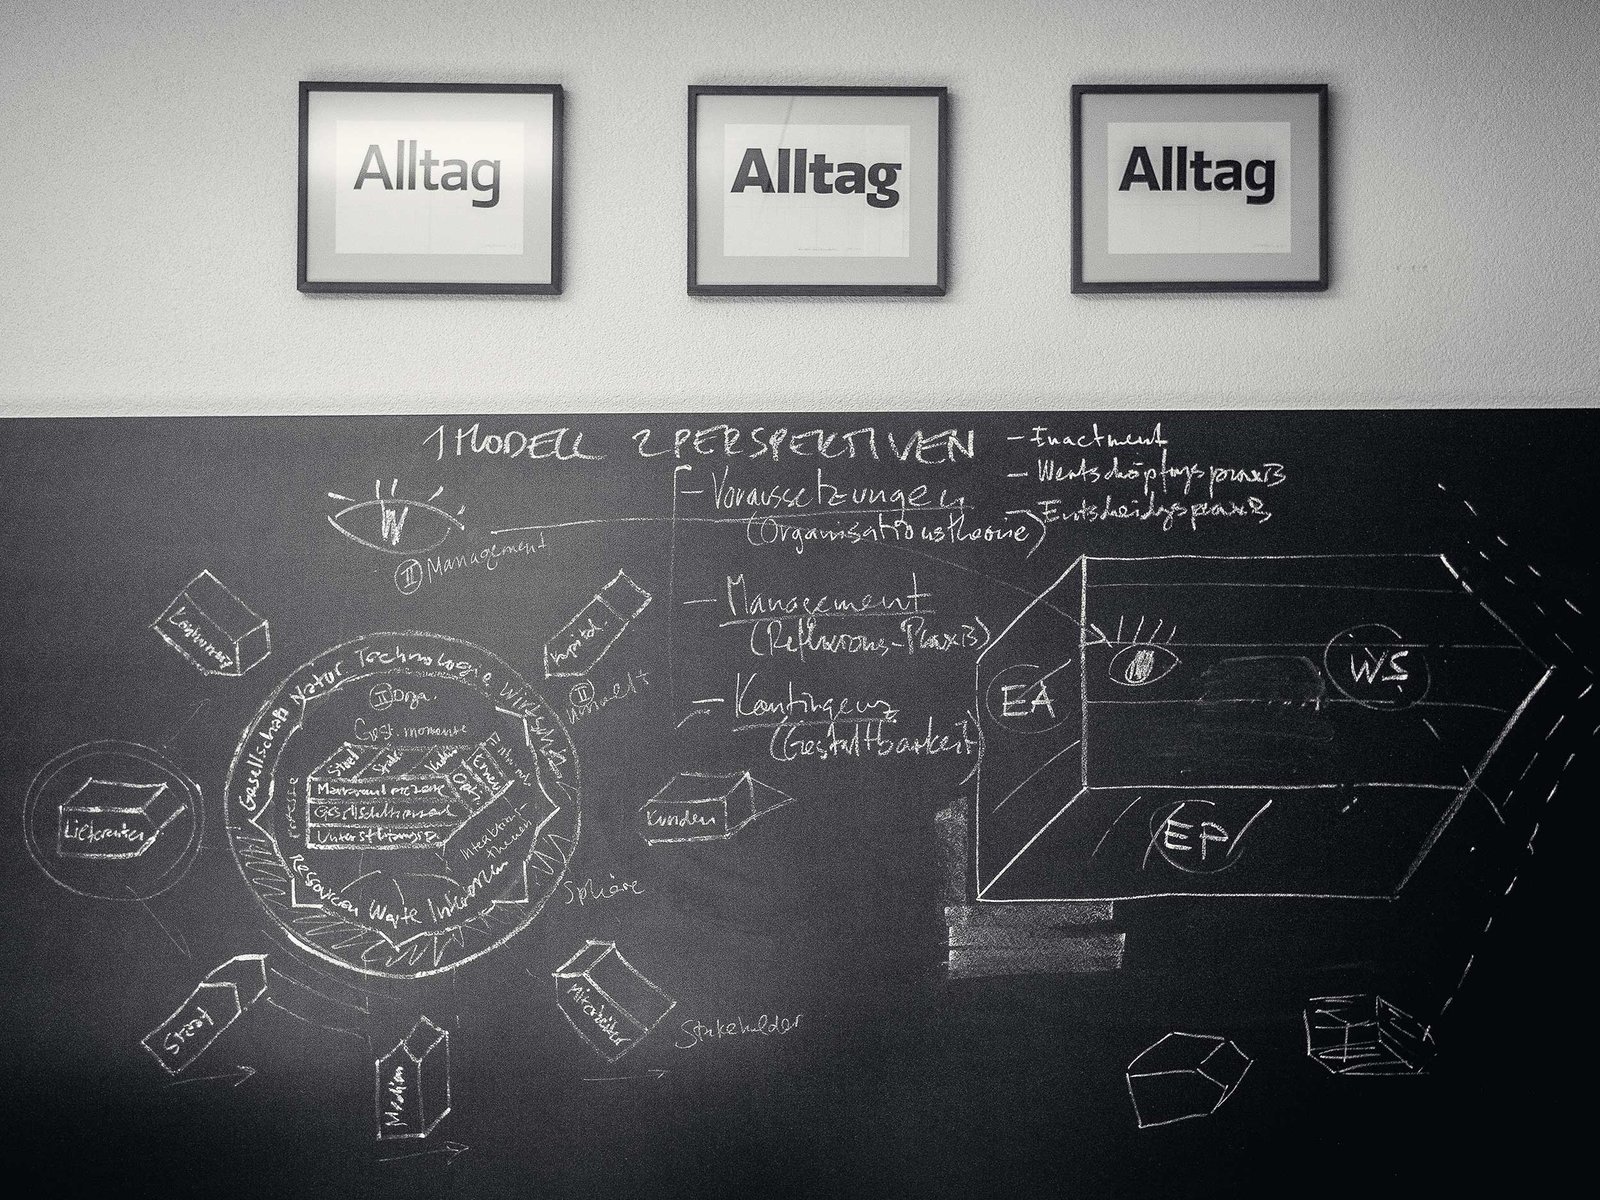 Alltag
Alltag
Alltag
1 MODELL 2 PERSPEKTIVEN
– Voraussetzungen
(Organisationstheorie)
– Management
(Reflexions-Praxis)
– Kontingenz
(Gestaltbarkeit)
– Enactment
– Wertschöpfungspraxis
– Entscheidungspraxis
II Management
Kapital
II Umwelt
Gesellschaft Natur Technologie Wirtschaft
I Orga.
Gest. momente
Prozesse
Ressourcen Werte Interessen
Sphäre
Lieferanten
Kunden
Staat
Medien
Mitarbeiter
Stakeholder
EA
WS
EP